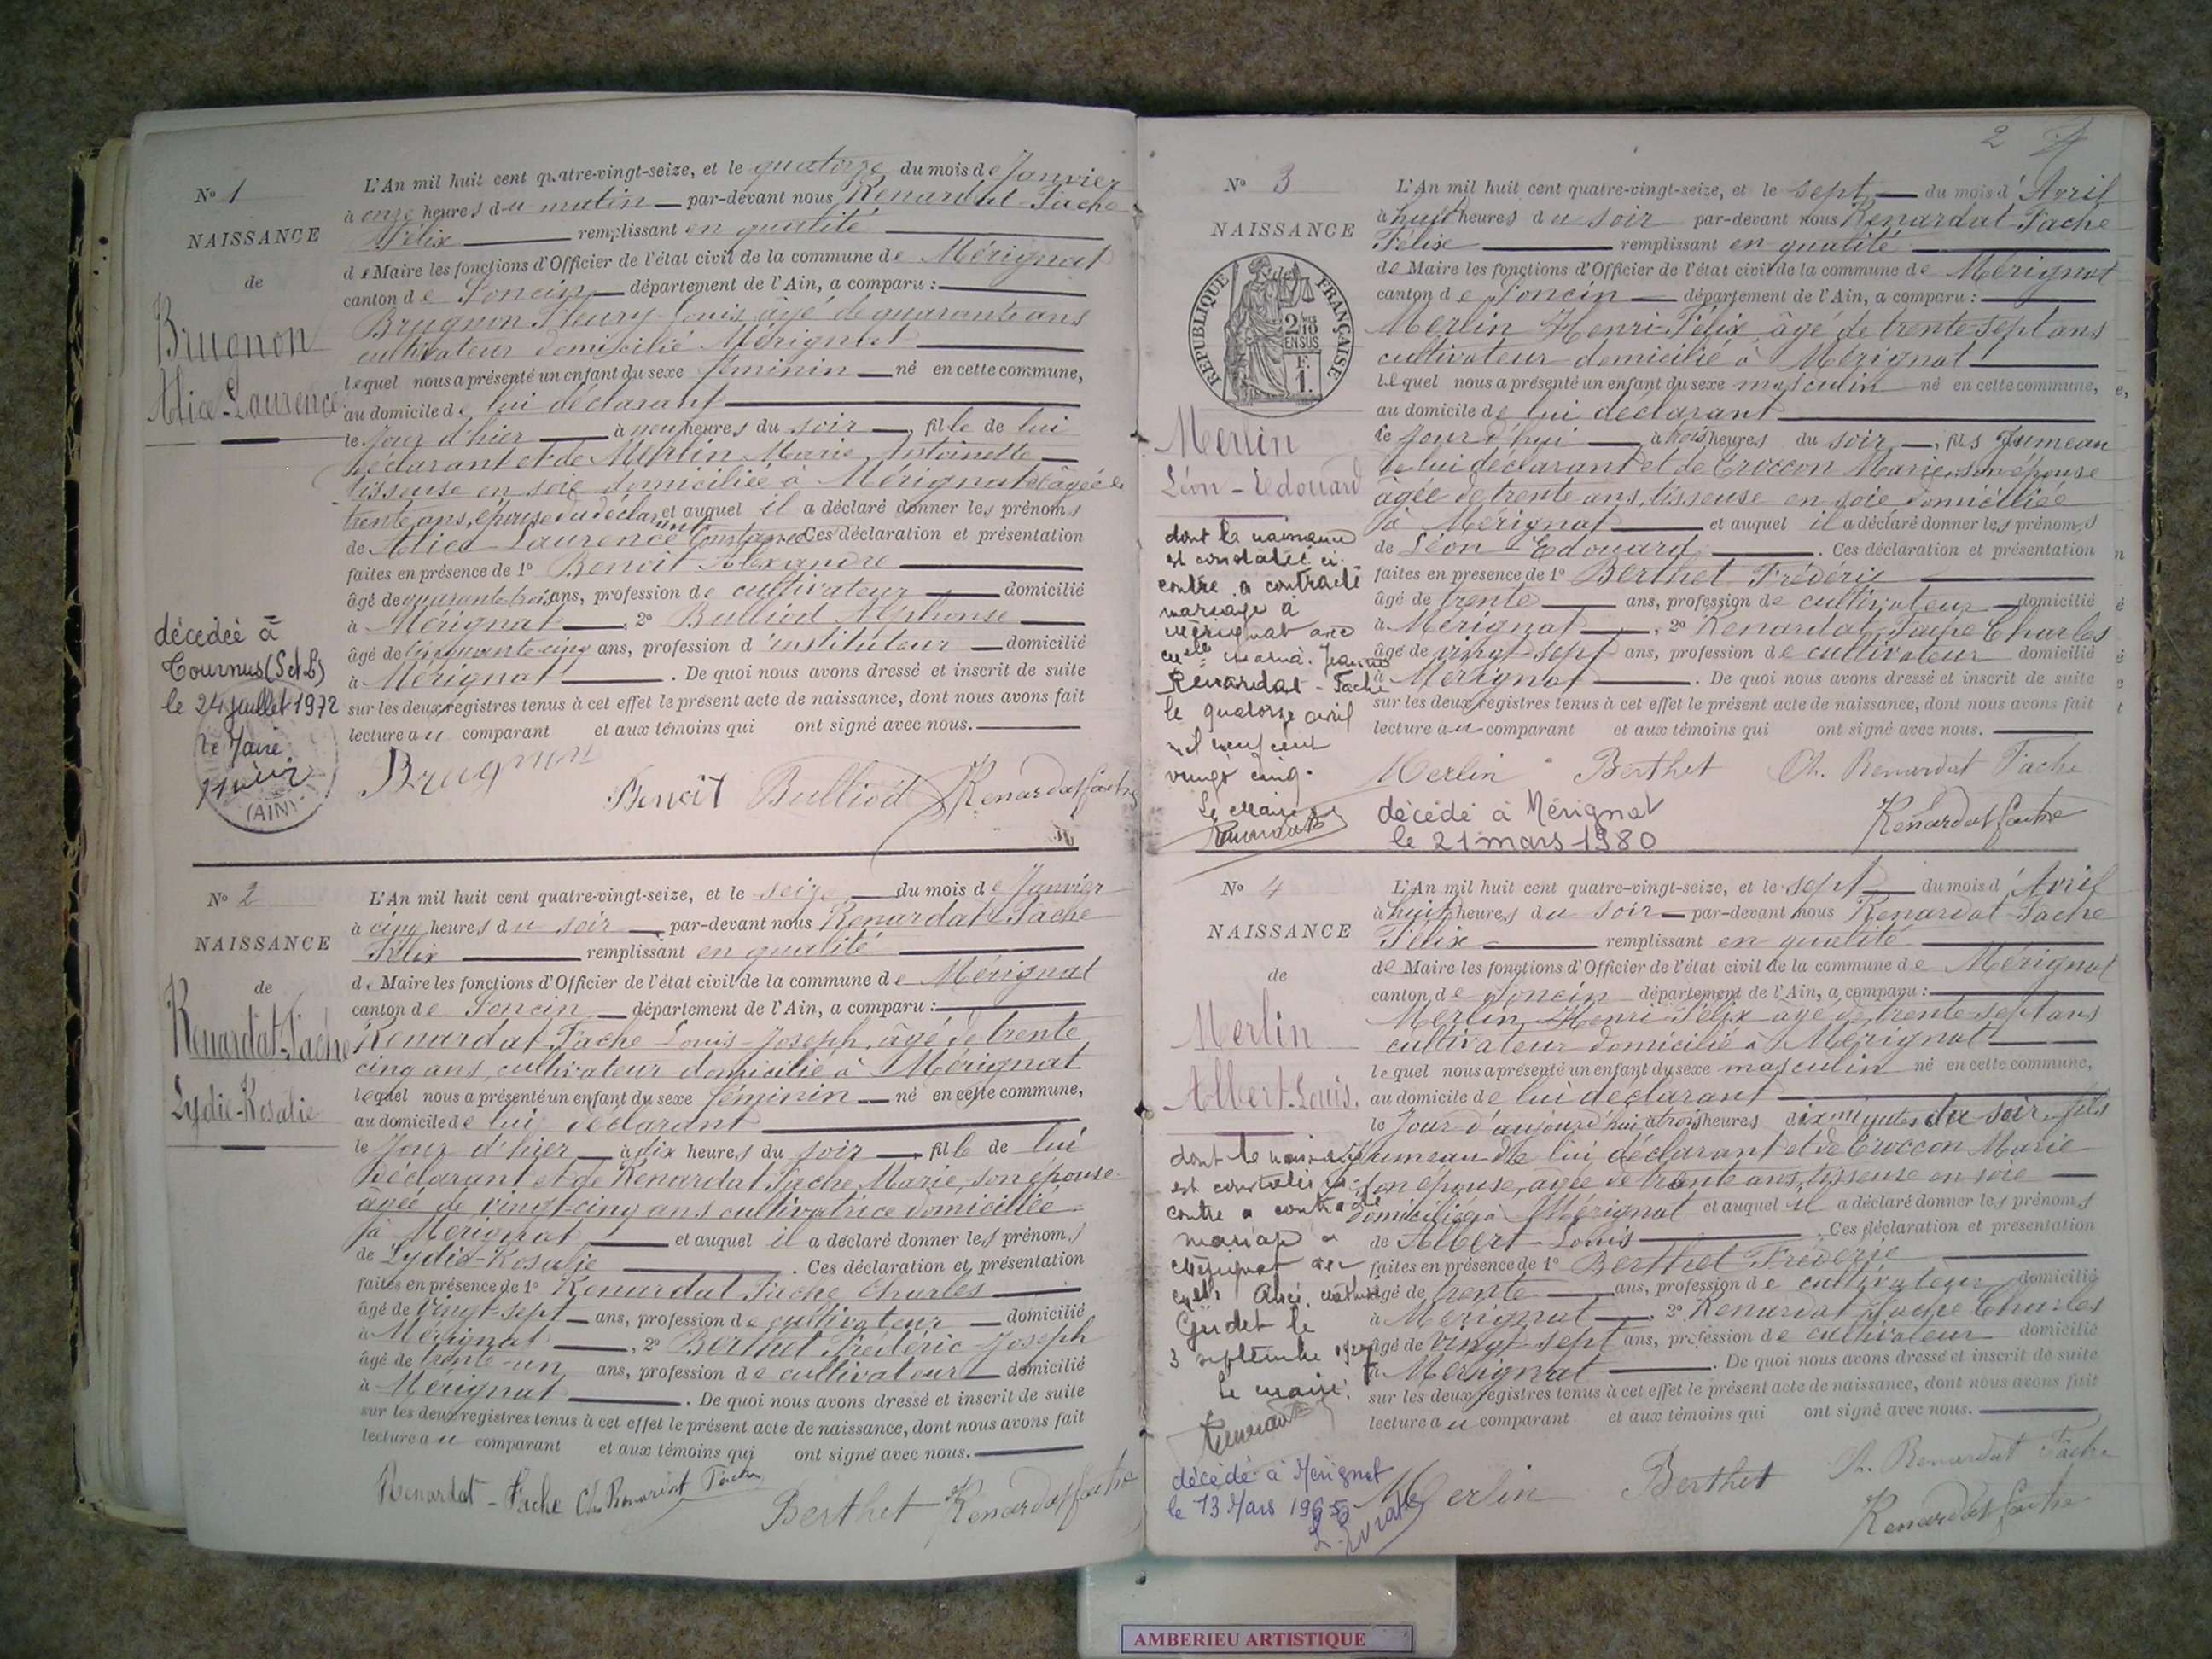 No 1
NAISSANCE
de
Brugnon
Alice-Laurence
décédée à
Tournus (S et L)
le 24 juillet 1972
le Maire
(AIN)
L'An mil huit cent quatre-vingt-seize, et le quatorze du mois de Janvier
à onze heures du matin par-devant nous Renardat-Fache
Félix remplissant en qualité
de Maire les fonctions d'Officier de l'état civil de la commune de Mérignat
canton de Poncin département de l'Ain, a comparu :
Brugnon Fleury-Louis âgé de quarante ans
cultivateur domicilié Mérignat
lequel nous a présenté un enfant du sexe féminin né en cette commune,
au domicile de lui déclarant
le jour d'hier à neuf heures du soir, fille de lui
déclarant et de Merlin Marie Antoinette
tisseuse en soie domiciliée à Mérignat et âgée de
trente ans, épouse du déclarant et auquel il a déclaré donner les prénoms
de Alice-Laurence Constance Ces déclaration et présentation
faites en présence de 1o Benoit Alexandre
âgé de quarante trois ans, profession de cultivateur domicilié
à Mérignat, 2o Bulliod Alphonse
âgé de cinquante-cinq ans, profession d'instituteur domicilié
à Mérignat. De quoi nous avons dressé et inscrit de suite
sur les deux registres tenus à cet effet le présent acte de naissance, dont nous avons fait
lecture au comparant et aux témoins qui ont signé avec nous.
Brugnon Benoît Bulliod Renardat fache
No 2
NAISSANCE
de
Renardat-Fache
Lydie-Rosalie
L'An mil huit cent quatre-vingt-seize, et le seize du mois de Janvier
à cinq heures du soir par-devant nous Renardat-Fache
Félix remplissant en qualité
de Maire les fonctions d'Officier de l'état civil de la commune de Mérignat
canton de Poncin département de l'Ain, a comparu :
Renardat-Fache Louis-Joseph, âgé de trente
cinq ans, cultivateur domicilié à Mérignat
lequel nous a présenté un enfant du sexe féminin né en cette commune,
au domicile de lui déclarant
le jour d'hier à dix heures du soir fille de lui
déclarant et de Renardat Fache Marie, son épouse
agée de vingt-cinq ans cultivatrice domiciliée
à Mérignat et auquel il a déclaré donner les prénoms
de Lydie-Rosalie. Ces déclaration et présentation
faites en présence de 1o Renardat Fache Charles
âgé de vingt-sept ans, profession de cultivateur domicilié
à Mérignat, 2o Berthet Frédéric-Joseph
âgé de trente-un ans, profession de cultivateur domicilié
à Mérignat. De quoi nous avons dressé et inscrit de suite
sur les deux registres tenus à cet effet le présent acte de naissance, dont nous avons fait
lecture au comparant et aux témoins qui ont signé avec nous.
Renardat-Fache Ch. Renardat Fache Berthet Renardat fache
2
No 3
NAISSANCE
REPUBLIQUE FRANÇAISE
2/10
EN SUS
F.
1.
Merlin
Léon-Edouard
dont la naissance
est constatée ci-
contre a contracté
mariage à
Mérignat avec
Jeanne
Renardat-Fache
le quatorze avril
mil neuf cent
vingt cinq.
Le Maire
L'An mil huit cent quatre-vingt-seize, et le sept du mois d'Avril
à huit heures du soir par-devant nous Renardat Fache
Félix remplissant en qualité
de Maire les fonctions d'Officier de l'état civil de la commune de Mérignat
canton de Poncin département de l'Ain, a comparu :
Merlin Henri-Félix âgé de trente-sept ans
cultivateur domicilié à Mérignat
lequel nous a présenté un enfant du sexe masculin né en cette commune,
au domicile de lui déclarant
le jour d'hui à trois heures du soir, fils jumeau
de lui déclarant et de Croccon Marie son épouse
âgée de trente ans, tisseuse en soie domiciliée
à Mérignat et auquel il a déclaré donner les prénoms
de Léon-Edouard. Ces déclaration et présentation
faites en présence de 1o Berthet Frédéric
âgé de trente ans, profession de cultivateur domicilié
à Mérignat, 2o Renardat-Fache Charles
âgé de vingt-sept ans, profession de cultivateur domicilié
à Mérignat. De quoi nous avons dressé et inscrit de suite
sur les deux registres tenus à cet effet le présent acte de naissance, dont nous avons fait
lecture au comparant et aux témoins qui ont signé avec nous.
Merlin Berthet Ch. Renardat Fache
décédé à Mérignat
le 21 mars 1980
Renardat fache
No 4
NAISSANCE
de
Merlin
Albert-Louis.
contre a contracté
mariage à
Mérignat avec
Gudet le
3 septembre
Le maire:
décédé à Mérignat
le 13 Mars 1965
L'An mil huit cent quatre-vingt-seize, et le sept du mois d'Avril
à huit heures du soir par-devant nous Renardat-Fache
Félix remplissant en qualité
de Maire les fonctions d'Officier de l'état civil de la commune de Mérignat
canton de Poncin département de l'Ain, a comparu :
Merlin Henri-Félix agé de trente-sept ans
cultivateur domicilié à Mérignat
lequel nous a présenté un enfant du sexe masculin né en cette commune,
au domicile de lui déclarant
le jour d'aujourd'hui à trois heures dix minutes du soir fils
jumeau de lui déclarant et de Croccon Marie
son épouse, agée de trente ans, tisseuse en soie
domiciliée à Mérignat et auquel il a déclaré donner les prénoms
de Albert-Louis. Ces déclaration et présentation
faites en présence de 1o Berthet Frédéric
âgé de trente ans, profession de cultivateur domicilié
à Mérignat, 2o Renardat Fache Charles
âgé de vingt-sept ans, profession de cultivateur domicilié
à Mérignat. De quoi nous avons dressé et inscrit de suite
sur les deux registres tenus à cet effet le présent acte de naissance, dont nous avons fait
lecture au comparant et aux témoins qui ont signé avec nous.
Merlin Berthet Ch. Renardat Fache
Renardat fache
AMBERIEU ARTISTIQUE